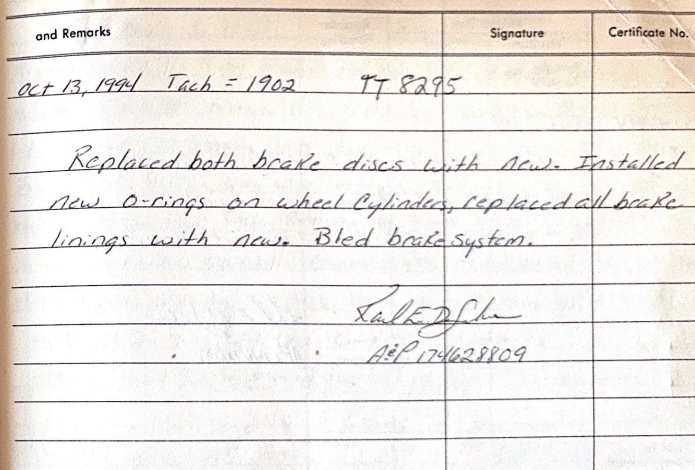 and Remarks Signature Certificate No.
Oct 13, 1994 Tach = 1902 TT 8295
Replaced both brake discs with new. Installed
new O-rings on wheel Cylinders, replaced all brake
linings with new. Bled brake system.
A&P 174628809